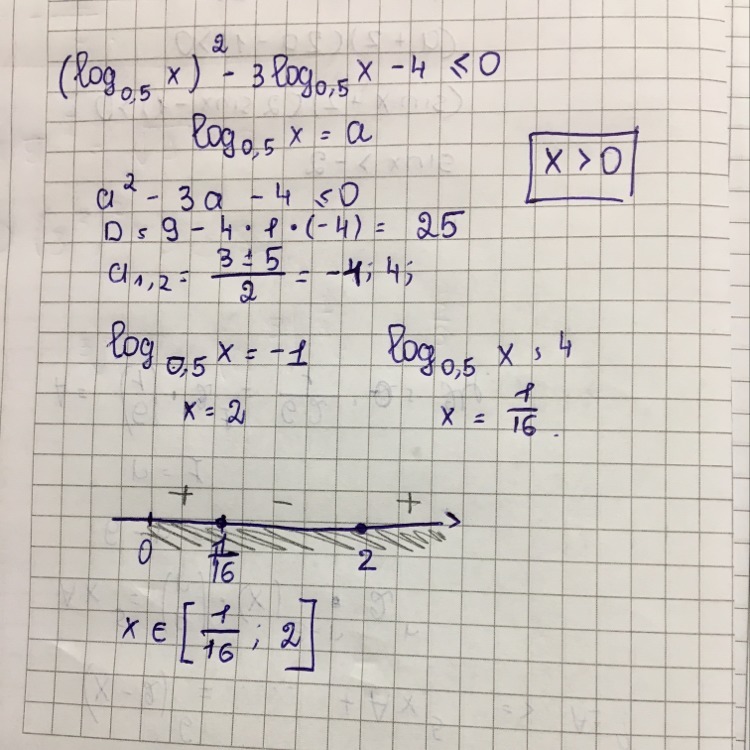 (log₀,₅ x)² - 3log₀,₅ x - 4 ≤ 0
log₀,₅ x = a
x > 0
a² - 3a - 4 ≤ 0
D = 9 - 4 · 1 · (-4) = 25
a₁,₂ = (3 ± 5)/2 = -1; 4;
log₀,₅ x = -1 log₀,₅ x = 4
x = 2 x = 1/16.
+ - +
0 1/16 2
x ∈ [1/16; 2]